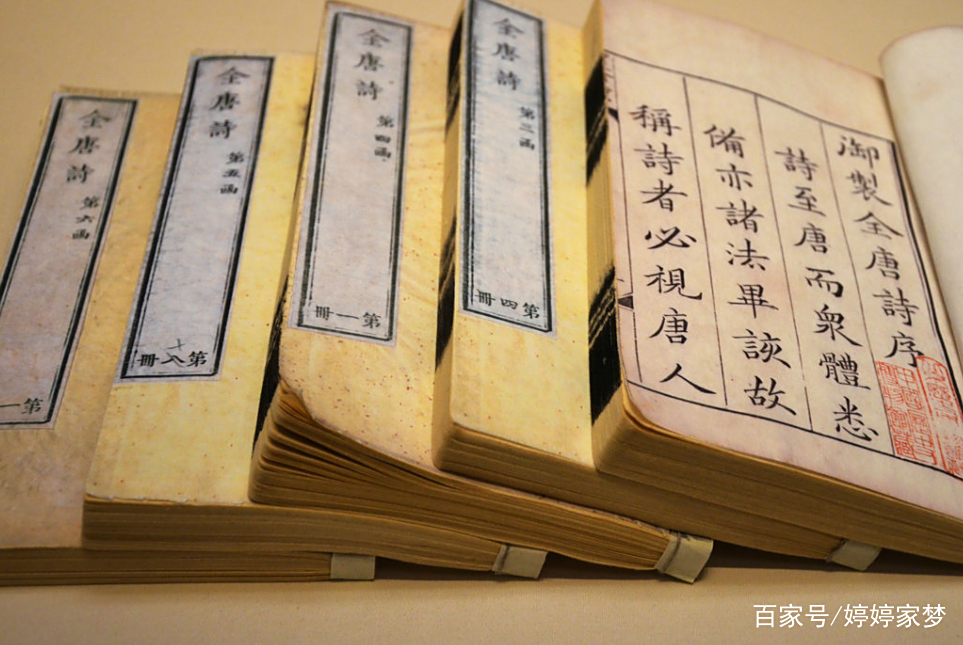 御製全唐詩序
詩至唐而衆體悉
備亦諸法畢該故
稱詩者必視唐人
全唐詩
第三函
第四冊
全唐詩
第四函
第一冊
全唐詩
第五函
第八冊
全唐詩
第六函
第一
百家号/婷婷家梦